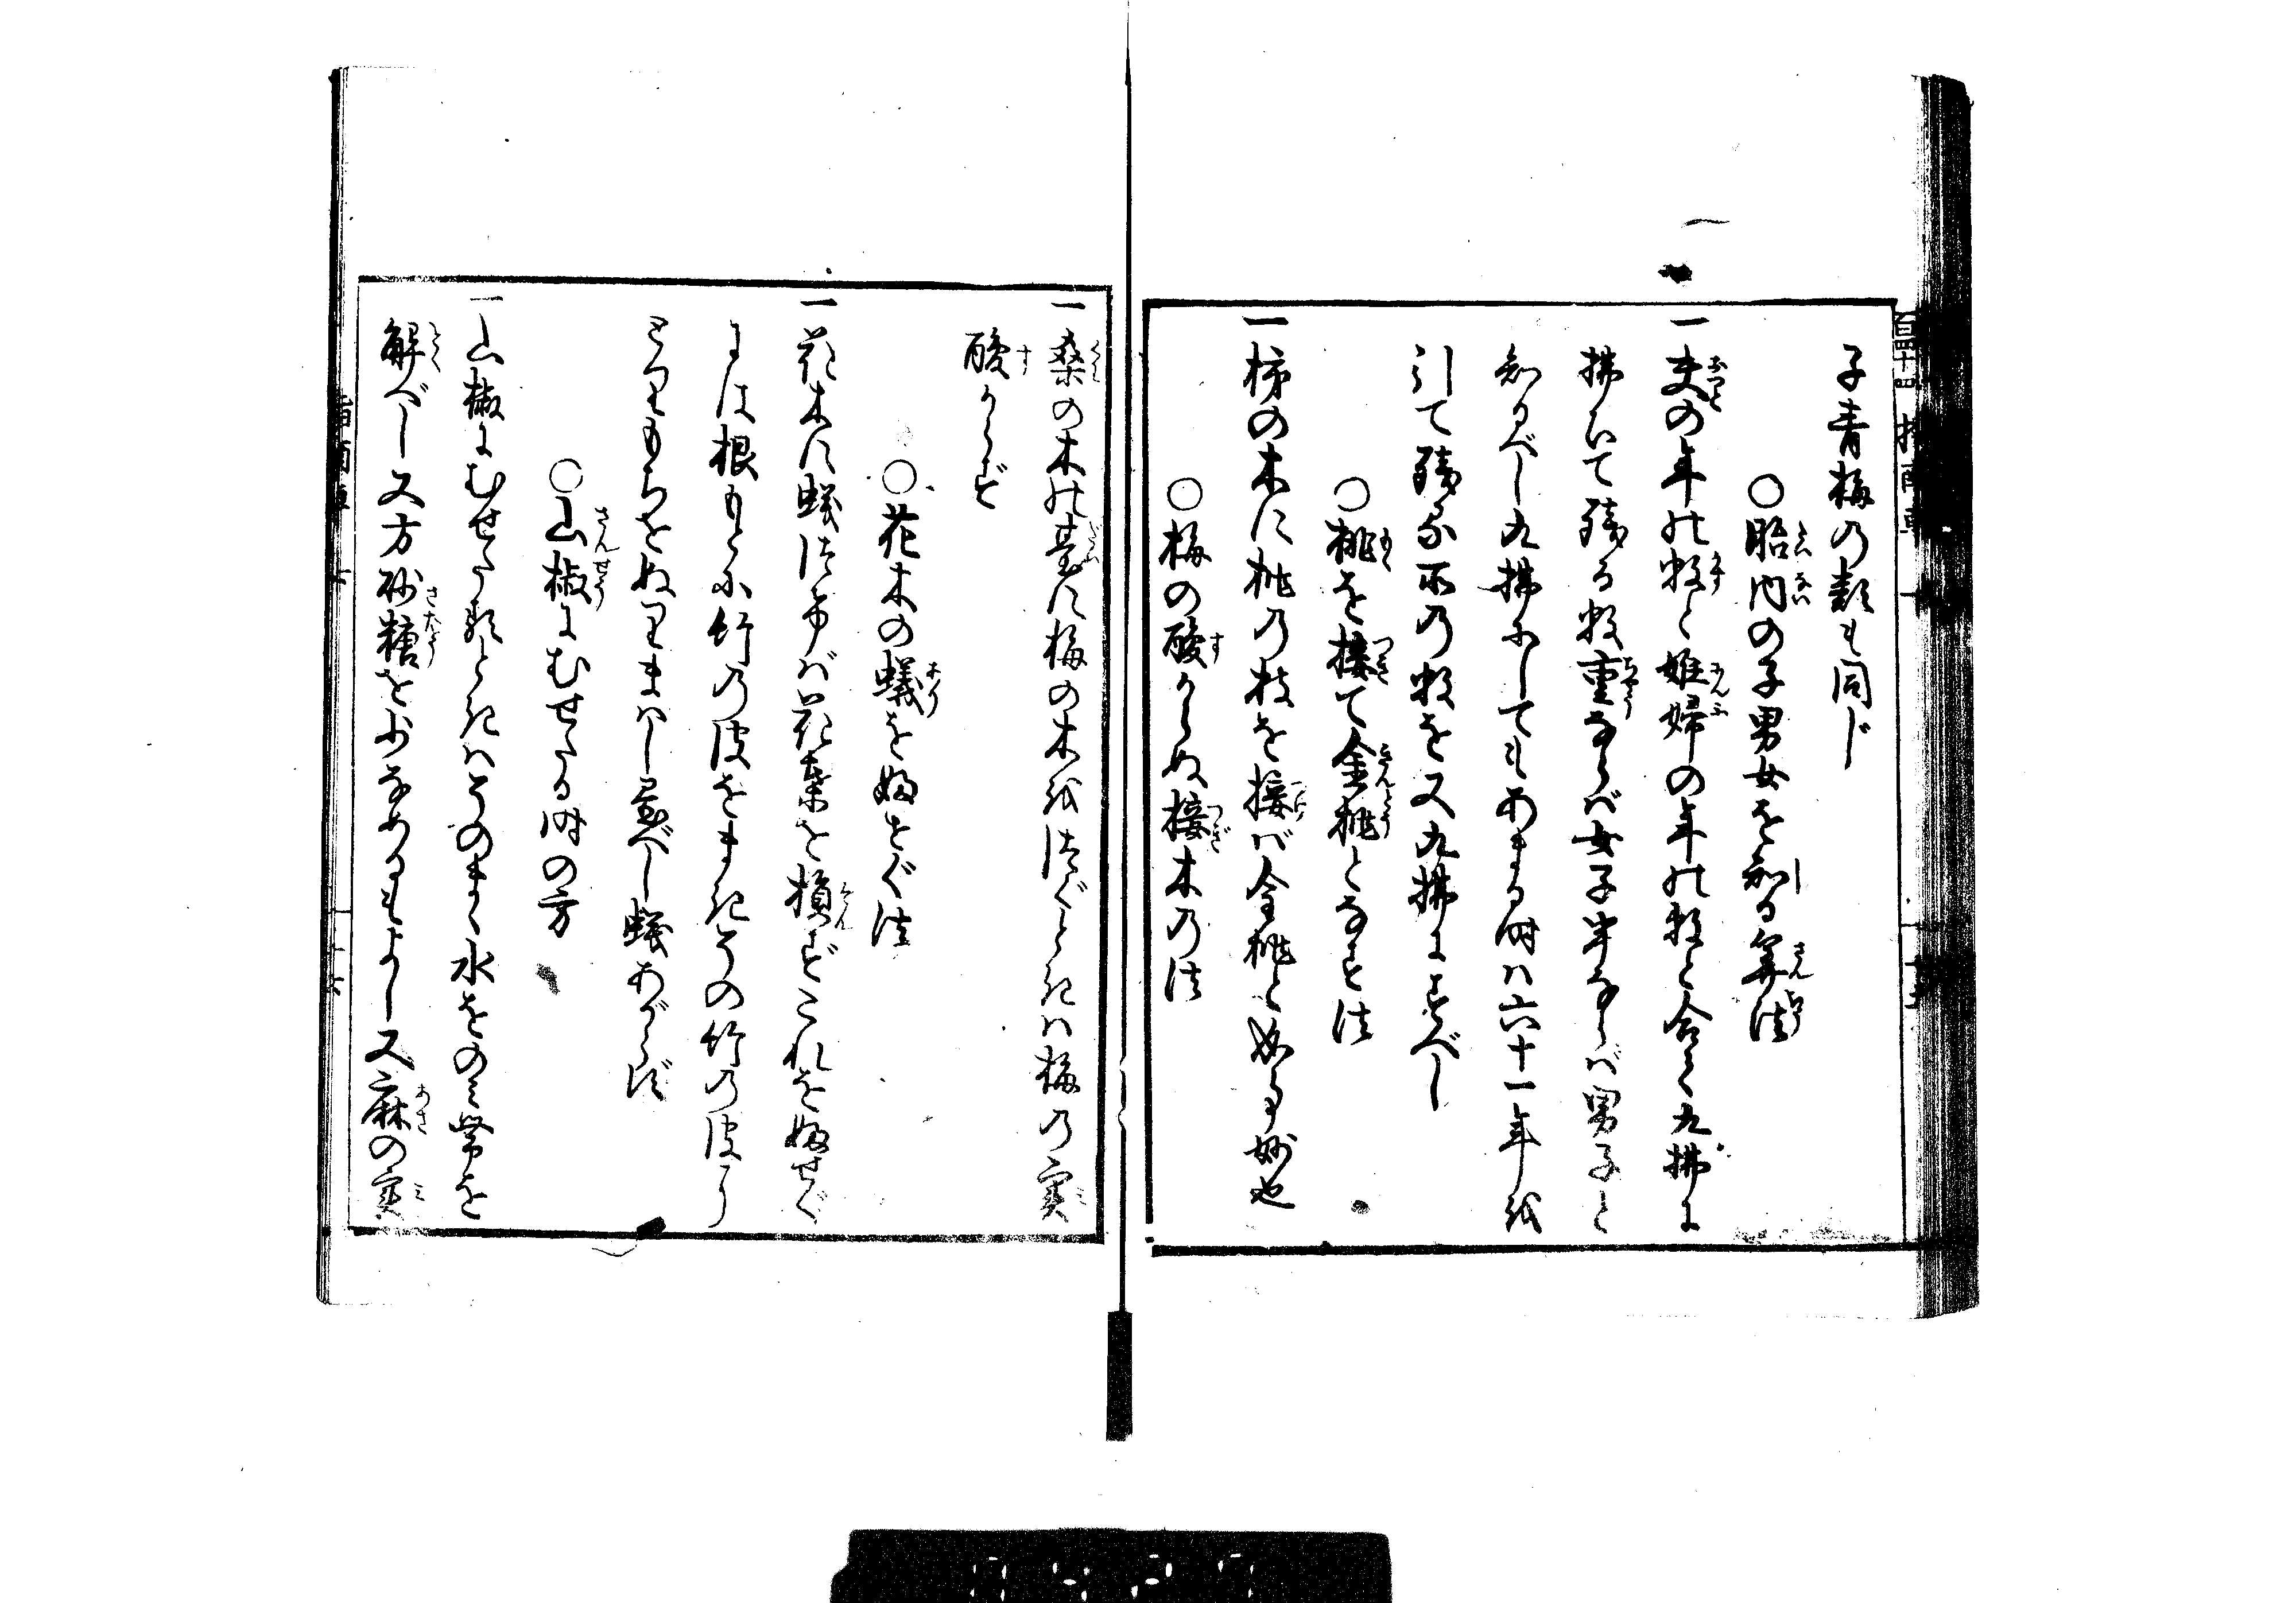 子青梅の類も同じ
○胎内の子男女を知る算法
一夫の年の数と姙婦の年の数と合て九拂に
拂ひて残る数重ならば女子半ならば男子と
知るべし九拂にしてもあまる時ハ六十一年を
引て残る所の数を又九拂にすべし
○桃を接て金桃となす法
一柿の木に桃の枝を接ば金桃と如る事妙也
○梅の酸からぬ接木の法
一桑の木の臺に梅の木を接ぐときハ梅の実
酸からず
○花木の蟻を防ぐ法
一花木に蟻つけば花葉を損ずこれを防せぐ
には根もとに竹の皮をまきその竹の皮に
とりもちをぬりまはし置べし蟻あがらず
○山椒にむせたる時の方
一山椒にむせたるときハそのまゝ水をのみ帯を
解べし又方砂糖を少なめるもよし又麻の実